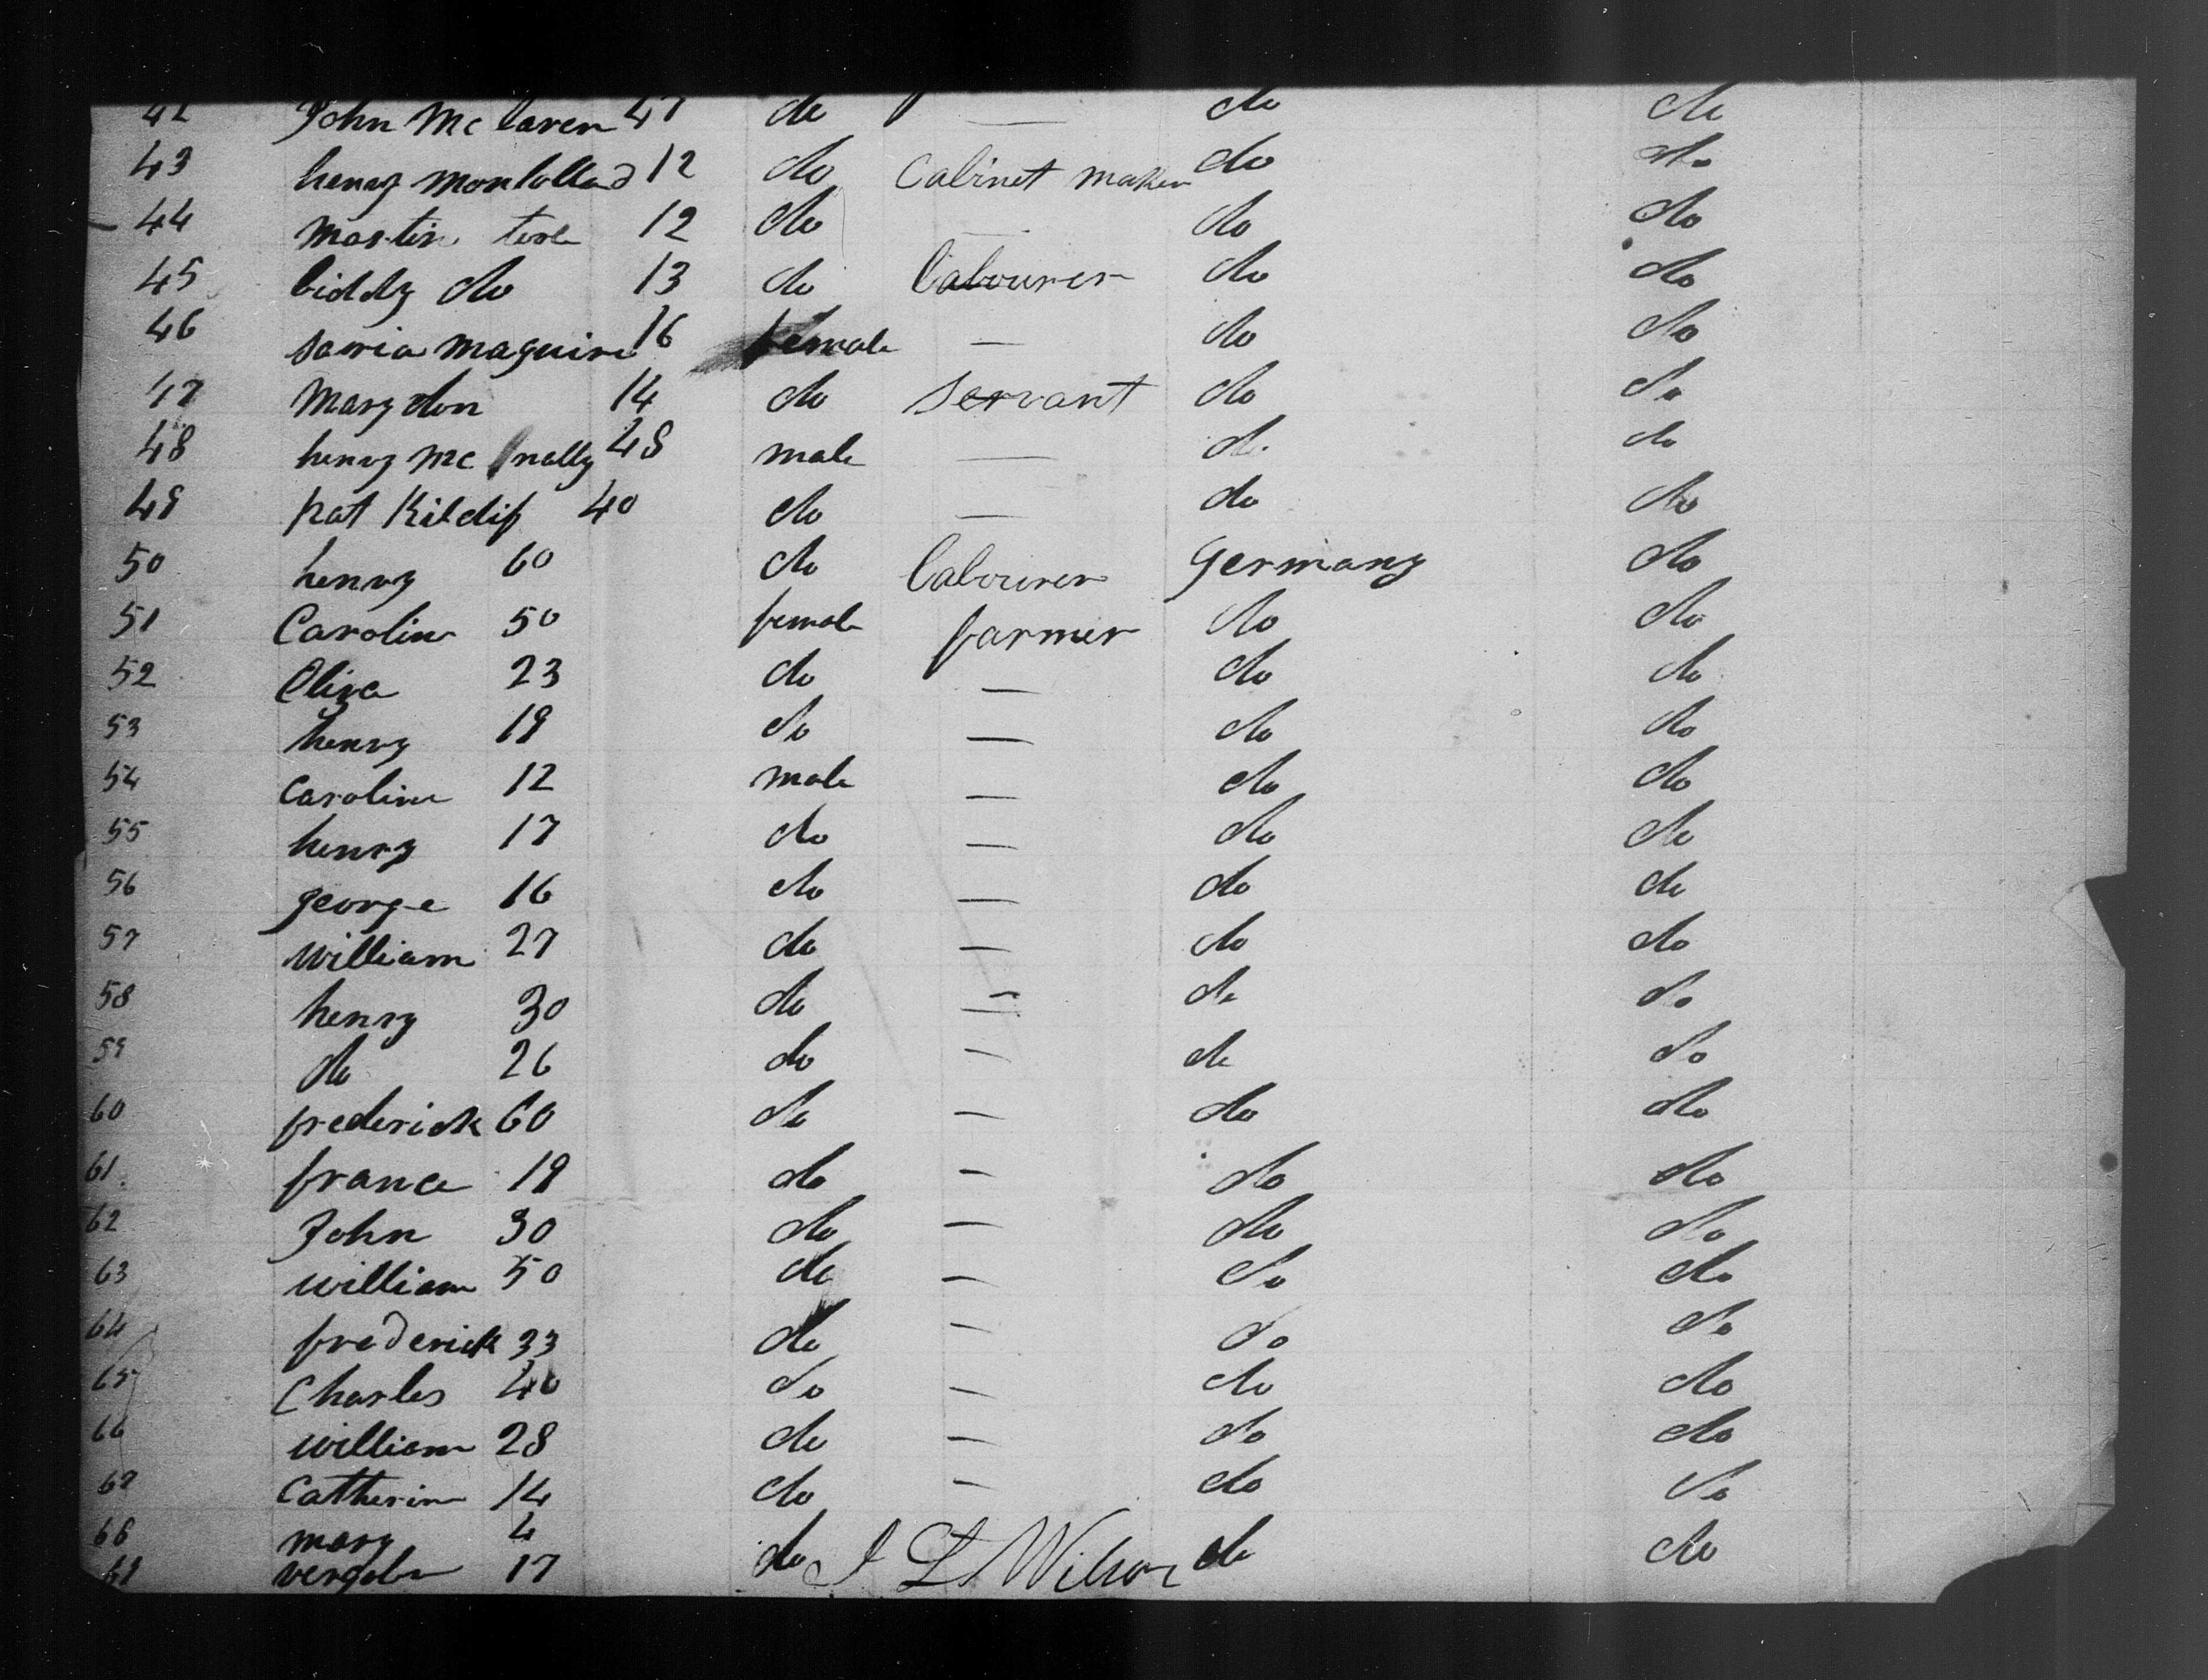 42 John Mc laren 47 do — do do
43 henry 12 do Cabinet maker do do
44 martin 12 do — do do
45 biddy do 13 do labourer do do
46 maguire 16 female — do do
47 mary don 14 do servant do do
48 henry mc nally 48 male — do do
49 pat Kildif 40 do — do do
50 henry 60 do labourer Germany do
51 Caroline 50 female farmer do do
52 Eliza 23 do — do do
53 henry 19 do — do do
54 Caroline 12 male — do do
55 henry 17 do — do do
56 george 16 do — do do
57 william 27 do — do do
58 henry 30 do — do do
59 do 26 do — do do
60 frederick 60 do — do do
61 france 19 do — do do
62 John 30 do — do do
63 william 50 do — do do
64 frederick 33 do — do do
65 Charles 40 do — do do
66 william 28 do — do do
67 Catherine 14 do — do do
68 mary 4
69 17 do J L Wilson do do